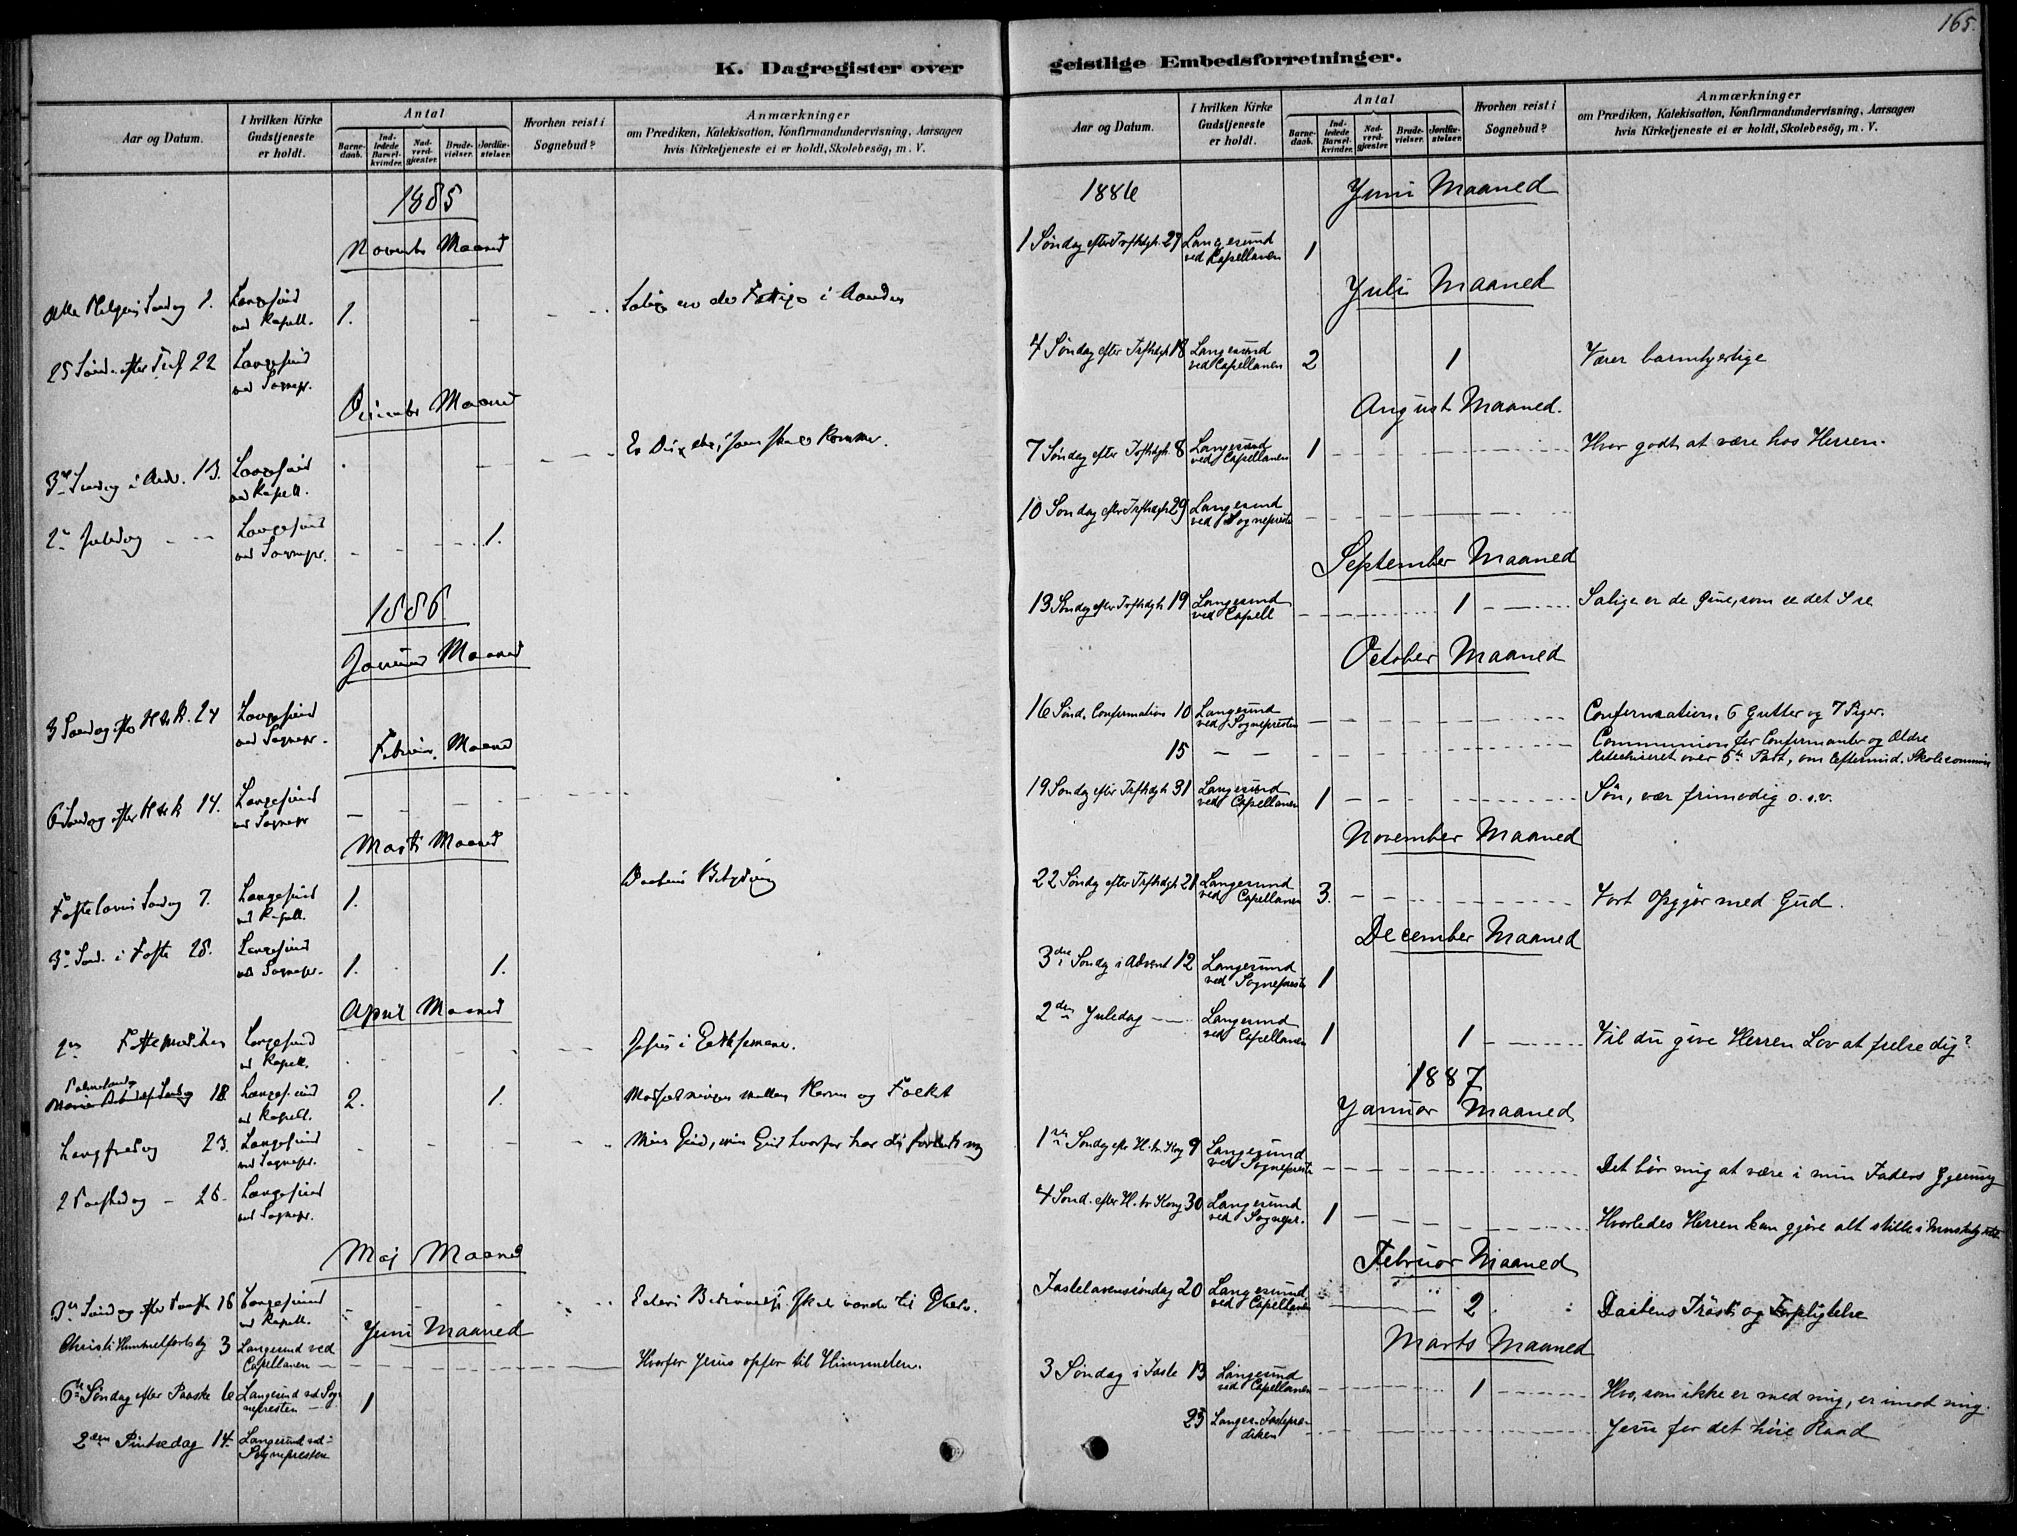 165.
K. Dagregister over
Aar og Datum.
I hvilken Kirke Gudstjeneste er holdt.
Antal
Barne-daab.
Ind-ledede Barsel-kvinder.
Nad-verd-gjæster.
Brude-vielser.
Jordfæ-stelser.
Hvorhen reist i Sognebud?
Anmærkninger
om Prædiken, Katekisation, Konfirmandundervisning, Aarsagen
hvis Kirketjeneste ei er holdt, Skolebesög, m. V.
1885
Novembr Maaned
Alle Helgens Søndag 1. Langesund ved Kapell. 1. Salige ere de Fattige i Aanden
25 Sønd. efter Tref 22 Langesund ved Sognepr.
December Maaned
3die Søndag i Adv. 13. Langesund ved Kapell. Er Du den, som skal komme.
2n Juledag Langesund ved Sognepr. 1.
1886
Januar Maaned
3 Søndag efter H 3 K. 24 Langesund ved Sognepr.
Februar Maaned
6 Søndag efter H 3 K 14. Langesund ved Sognepr
Marts Maaned
Fastelavns Søndag 7. Langesund ved Kapell. 1. Daabens Betydning
3die Sønd. i Faste 28. Langesund ved Sognepr. 1. 1.
April Maaned
Fasteprædiken Langesund ved Kapell. Jesus i Gethsemane.
Palmesøndag 18 Langesund ved Kapell. 2. 1. Modsætningen mellem Herren og Folket
Langfredag 23. Langesund ved Sognepr. Min Gud, min Gud hvorfor har du forladt mig
2 Paaskedag 26. Langesund ved Sognepr.
Maj Maaned
3die Søndag efter Paaske 16 Langesund ved Kapell. Eders Bedrøvelse skal vendes til Glæde.
Juni Maaned
Christi Himmelfartsdag 3 Langesund ved Capellanen Hvorfor Jesus opfor til Himmelen.
6te Søndag efter Paaske 6 Langesund ved Sognepresten 1
2den Pintsedag 14. Langesund ved Sognepresten
geistlige Embedsforretninger.
Aar og Datum.
I hvilken Kirke Gudstjeneste er holdt.
Antal
Barne-daab.
Ind-ledede Barsel-kvinder.
Nad-verd-gjæster.
Brude-vielser.
Jordfæ-stelser.
Hvorhen reist i Sognebud?
Anmærkninger
om Prædiken, Katekisation, Konfirmandundervisning, Aarsagen
hvis Kirketjeneste ei er holdt, Skolebesög, m. V.
1886 Juni Maaned
1 Søndag efter Trefhdgh. 27 Langesund ved Capellanen 1
Juli Maaned
4 Søndag efter Trefhdgh 18 Langesund ved Capellanen 2 1 Værer barmhjertige
August Maaned.
7 Søndag efter Trefhdgh. 8 Langesund ved Capellanen 1 Hvor godt at være hos Herren.
10 Søndag efter Trefhdgh 29 Langesund ved Sognepresten
September Maaned
13 Søndag efter Trefhdgh 19 Langesund ved Capell 1 Salige er de Øine, som se det I se
October Maaned
16 Sønd. Confirmation 10 Langesund ved Sognepresten Confirmation. 6 Gutter og 7 Piger.
15 Communion for Confirmanter og Ældre
Katechiseret over 5te Part, om Eftermid. Skolecommission
19 Søndag efter Trefhdgh 31 Langesund ved Capellanen 1 Søn, vær frimodig o. s. v.
November Maaned
22 Søndag efter Trefhdgh 21 Langesund ved Capellanen 3. Vort Opgjør med Gud.
December Maaned
3die Søndag i Advent 12 Langesund ved Sognepresten 1
2den Juledag Langesund ved Capellanen 1 1 Vil du give Herren Lov at frelse dig?
1887
Januar Maaned
1ste Søndag efter H. tr. Kong 9 Langesund ved Sognepresten Det bør mig at være i min Faders Gjerning
4 Sønd. efter H. tr Kong 30 Langesund ved Sognepr. 1 Hvorledes Herren kan gjøre alt stille i
Februar Maaned
Fastelavnssøndag 20 Langesund ved Capellanen 2 Daabens Trøst og Forpligtelse
Marts Maaned
3 Søndag i Faste 13 Langesund ved Capellanen 1 Hvo, som ikke er med mig, er imod mig.
25 Langes. Fasteprædiken Jesu for det høie Raad